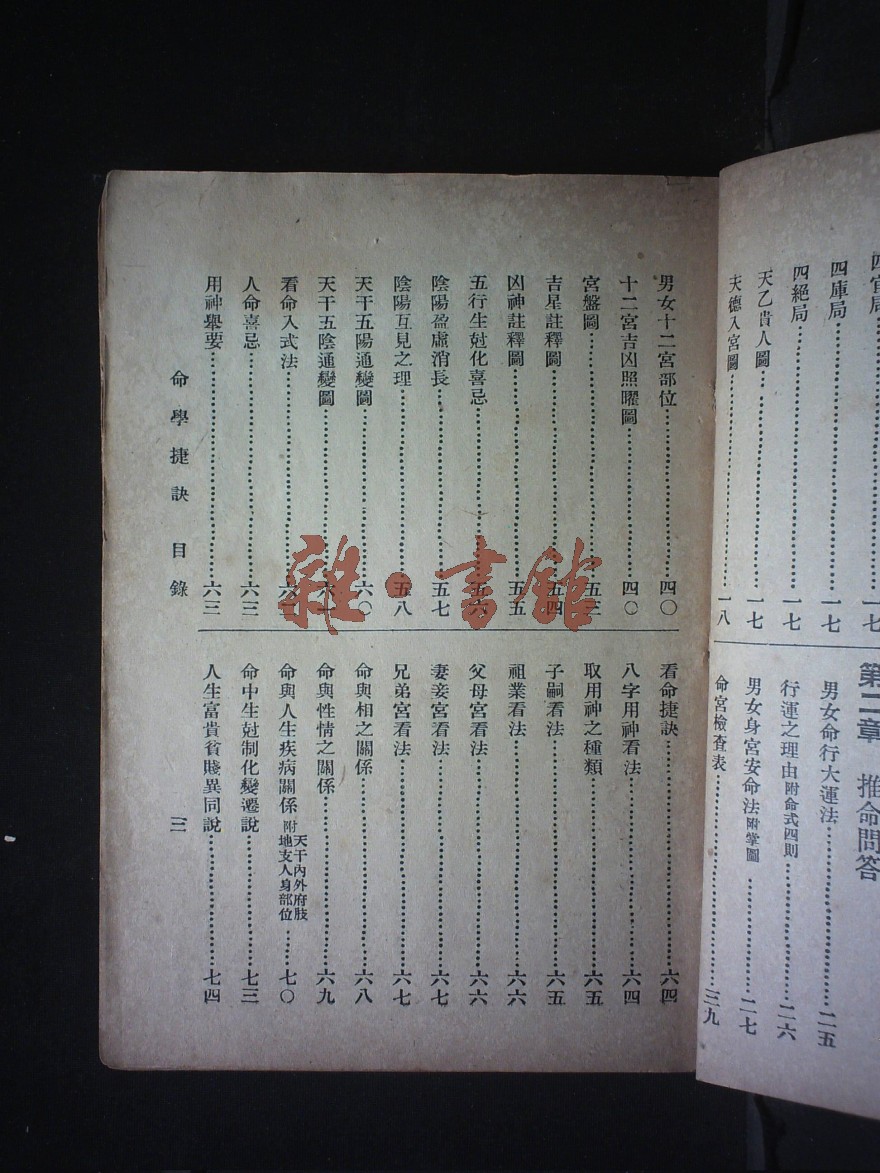 四官局……一七
四庫局……一七
四絕局……一七
天乙貴人圖……一七
天德入宮圖……一八
第二章 推命問答
男女命行大運法……二五
行運之理由附命式四則……二六
男女身宮安命法附掌圖……二七
命宮檢查表……三九
男女十二宮部位……四〇
十二宮吉凶照曜圖……四〇
宮盤圖……五三
吉星註釋圖……五四
凶神註釋圖……五五
五行生尅化喜忌……五六
陰陽盈虛消長……五七
陰陽互見之理……五八
天干五陽通變圖……六〇
天干五陰通變圖……六一
看命入式法……六二
人命喜忌……六三
用神舉要……六三
看命捷訣……六四
八字用神看法……六四
取用神之種類……六五
子嗣看法……六五
祖業看法……六六
父母宮看法……六六
妻妾宮看法……六七
兄弟宮看法……六七
命與相之關係……六八
命與性情之關係……六九
命與人生疾病關係附天干內外府肢地支人身部位……七〇
命中生尅制化變遷說……七三
人生富貴貧賤異同說……七四
命學捷訣 目錄
三
雜·書館